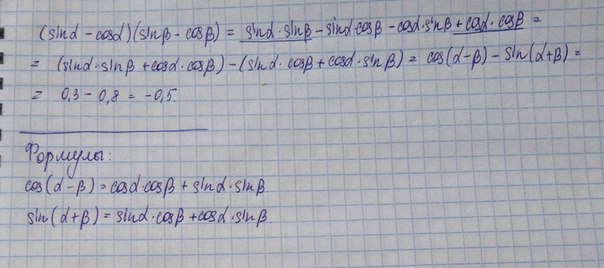 (sinα - cosα)(sinβ - cosβ) = sinα·sinβ - sinα·cosβ - cosα·sinβ + cosα·cosβ =
= (sinα·sinβ + cosα·cosβ) - (sinα·cosβ + cosα·sinβ) = cos(α-β) - sin(α+β) =
= 0,3 - 0,8 = -0,5.
Формулы:
cos(α-β) = cosα·cosβ + sinα·sinβ.
sin(α+β) = sinα·cosβ + cosα·sinβ.